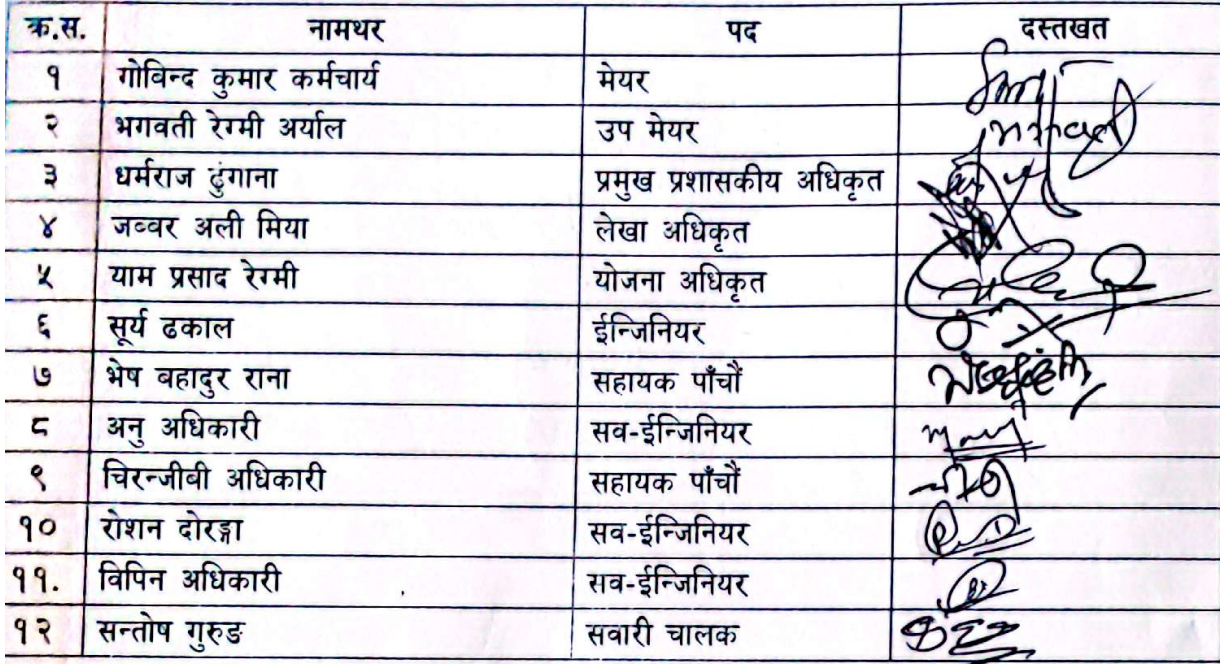 क्र.स. नामथर पद दस्तखत
१ गोविन्द कुमार कर्मचार्य मेयर
२ भगवती रेग्मी अर्याल उप मेयर
३ धर्मराज ढुंगाना प्रमुख प्रशासकीय अधिकृत
४ जव्वर अली मिया लेखा अधिकृत
५ याम प्रसाद रेग्मी योजना अधिकृत
६ सूर्य ढकाल ईन्जिनियर
७ भेष बहादुर राना सहायक पाँचौं
८ अनु अधिकारी सव-ईन्जिनियर
९ चिरन्जीबी अधिकारी सहायक पाँचौं
१० रोशन दोरङ्गा सव-ईन्जिनियर
११. विपिन अधिकारी सव-ईन्जिनियर
१२ सन्तोष गुरुङ सवारी चालक